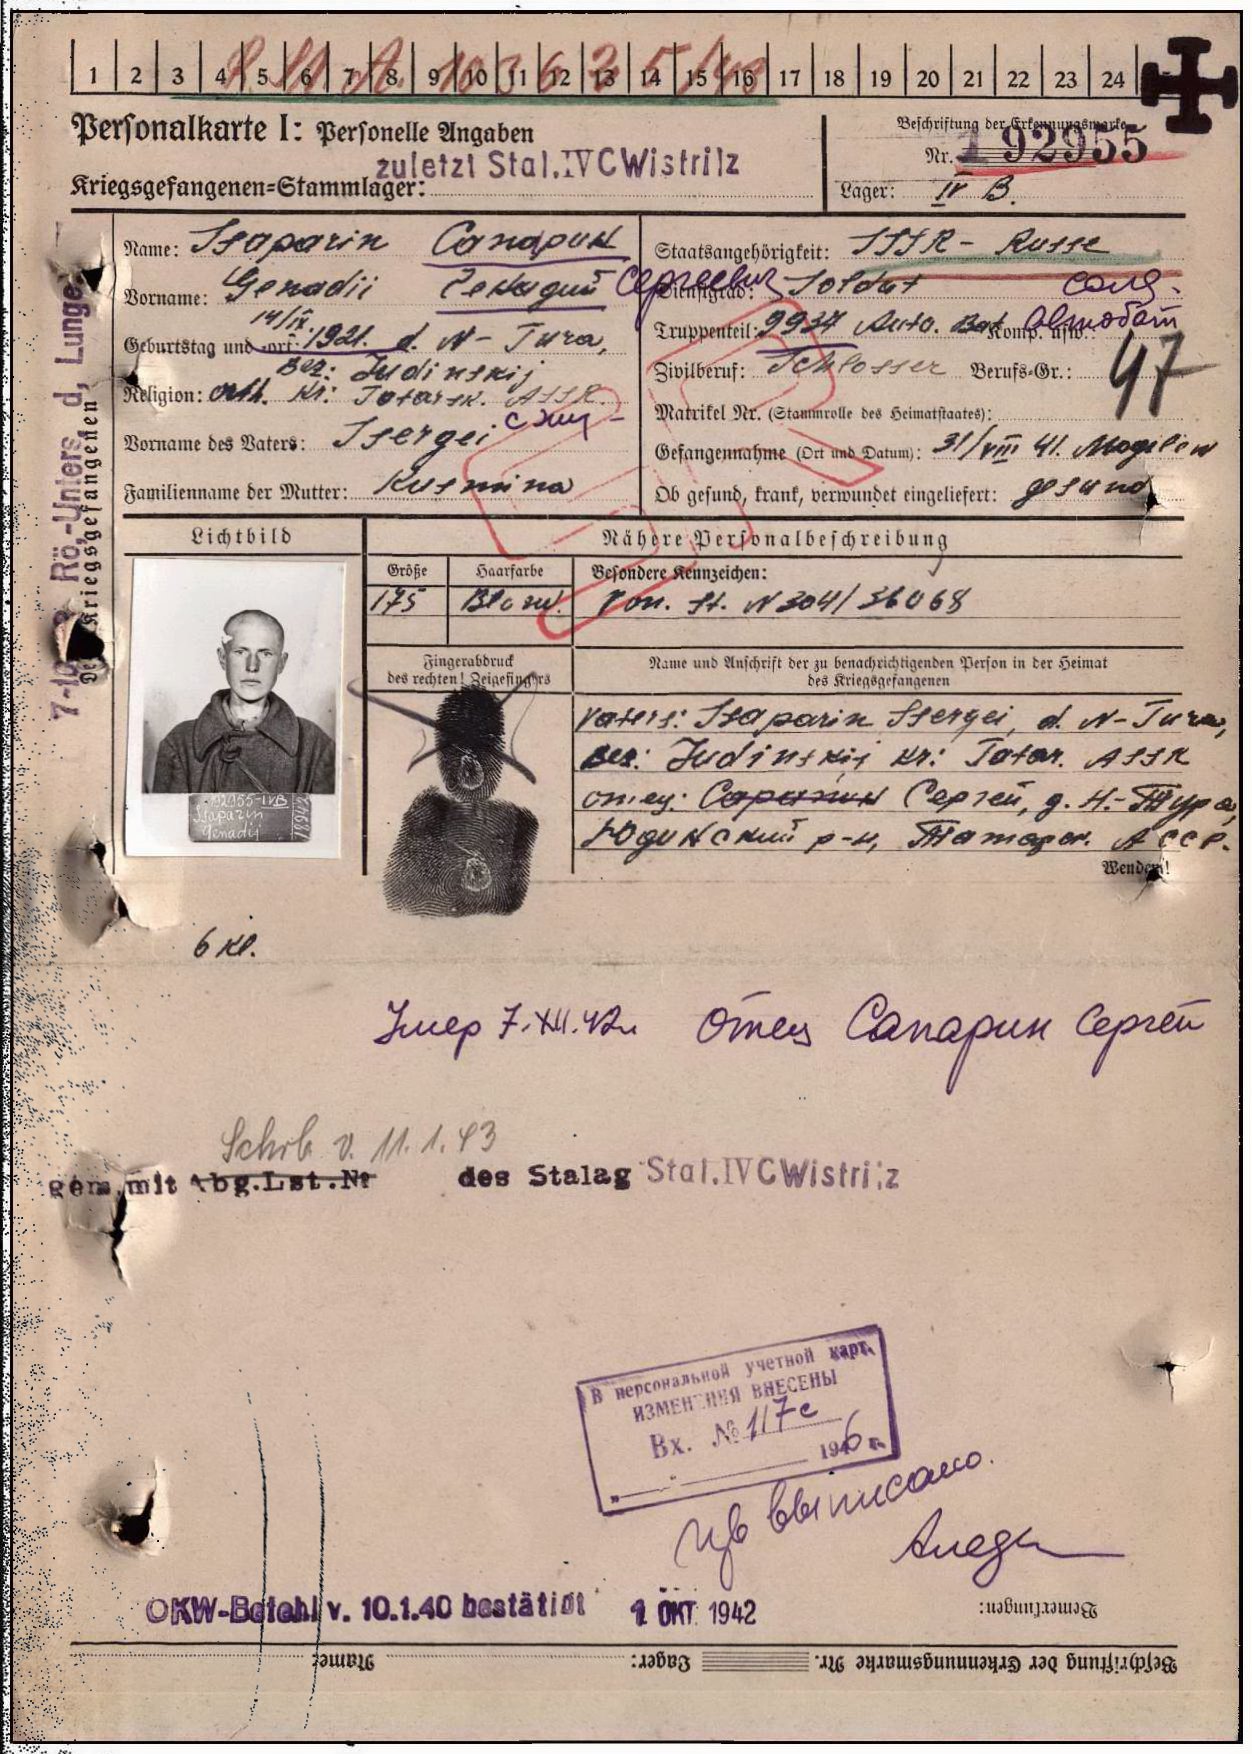 1 2 3 4 5 6 7 8 9 10 11 12 13 14 15 16 17 18 19 20 21 22 23 24
Personalkarte I: Personelle Angaben
Beschriftung der Erkennungsmarke
Nr. 192955
zuletzt Stal.IVC Wistritz
Kriegsgefangenen=Stammlager:
Lager: IV B.
Name: Ssaparin Сапарин
Staatsangehörigkeit: SSSR - Russe
Vorname: Genadii Генадий Сергеевич
Dienstgrad: Soldat солд.
14/IX.
Geburtstag und -ort: 1921. d. N-Tura,
Truppenteil: 9937 Auto. Bat Komp. usw.: Автобат
Bez: Judinskij
Zivilberuf: Schlosser Berufs-Gr.: 47
Religion: orth. Kr: Tatarsk. ASSR.
Matrikel Nr. (Stammrolle des Heimatstaates):
Vorname des Vaters: Ssergei
Gefangennahme (Ort und Datum): 31/VIII 41. Mogilew
Familienname der Mutter: Kusmina
Ob gesund, krank, verwundet eingeliefert: gesund
7-10 Rö,-Unters d, Lunge
Des Kriegsgefangenen
Lichtbild
Nähere Personalbeschreibung
Größe Haarfarbe Besondere Kennzeichen:
175 Blond. Von. St. N 304/36068
Fingerabdruck
des rechten! Zeigefingers
Name und Anschrift der zu benachrichtigenden Person in der Heimat
des Kriegsgefangenen
Vaters: Ssaparin Ssergei, d. N-Tura,
Bez: Judinskij Kr: Tatar. ASSR
отец: Сапарин Сергей, д. Н.-Тура,
Юдинский р-н, Татарск. АССР.
192955-IVB
Ssaparin
Genadij
Wenden!
6 кл.
Умер 7.XII.42г. Отец Сапарин Сергей
Schrb v. 11.1.43
gem. mit Abg.Lst.Nr des Stalag Stal.IVC Wistritz
В персональной учетной карт.
ИЗМЕНЕНИЯ ВНЕСЕНЫ
Вх. № 117с
1946 г.
выписано.
OKW-Befehl v. 10.1.40 bestätigt 1 OKT. 1942
Bemerkungen:
Beschriftung der Erkennungsmarke Nr. Lager: Name: